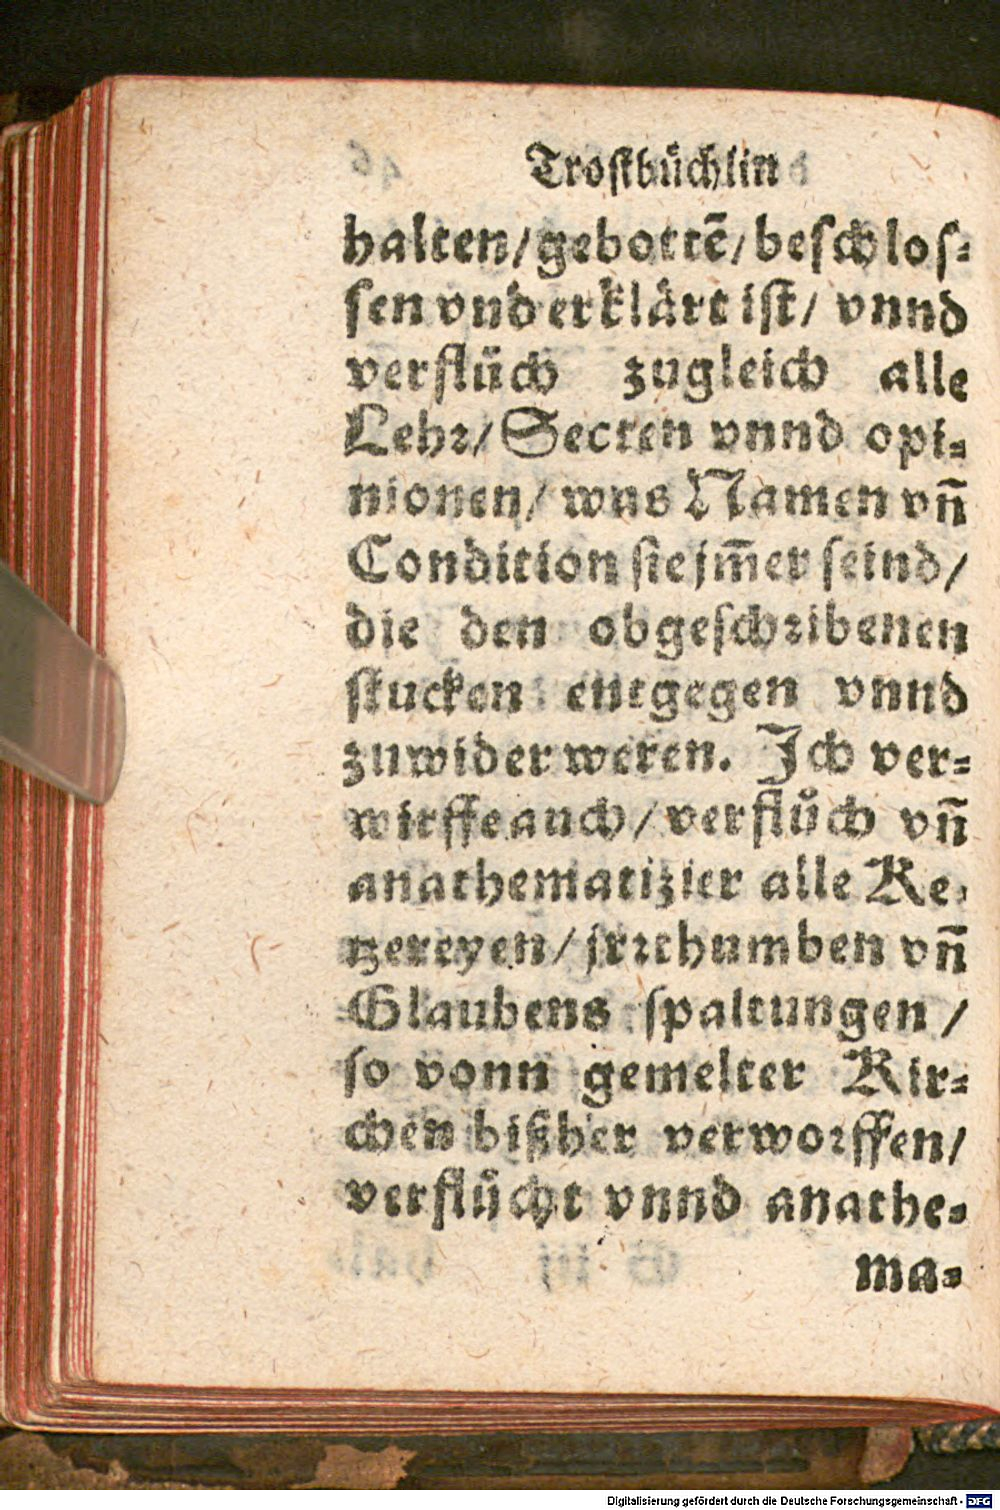 Trostbüchlin
halten/gebottē/beschlos-
sen vnd erklärt ist/ vnnd
verflůch zugleich alle
Lehr/Secten vnnd opi-
nionen/ was Namen vñ
Condition sie jm̃er seind/
die den obgeschribenen
stucken entgegen vnnd
zuwider weren. Ich ver-
wirffe auch/verflůch vñ
anathematizier alle Ke-
tzereyen/jrrthumben vñ
Glaubens spaltungen/
so vonn gemelter Kir-
chen bißher verworffen/
verflůcht vnnd anathe-
ma-
Digitalisierung gefördert durch die Deutsche Forschungsgemeinschaft - DFG